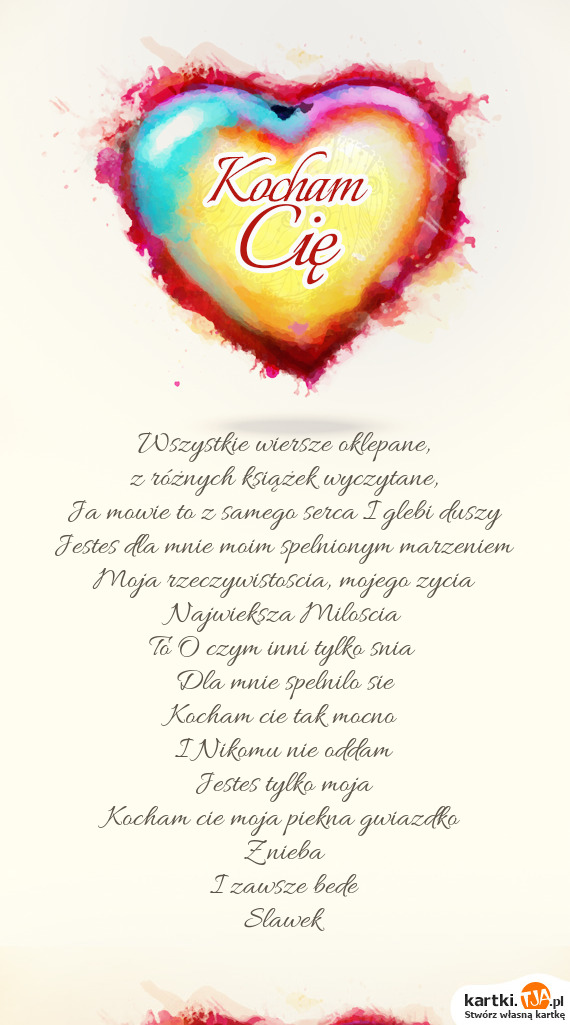 Kocham
Cię
Wszystkie wiersze oklepane,
z różnych książek wyczytane,
Ja mowie to z samego serca I glebi duszy
Jestes dla mnie moim spelnionym marzeniem
Moja rzeczywistoscia, mojego zycia
Najwieksza Miloscia
To O czym inni tylko snia
Dla mnie spelnilo sie
Kocham cie tak mocno
I Nikomu nie oddam
Jestes tylko moja
Kocham cie moja piekna gwiazdko
Znieba
I zawsze bede
Slawek
kartki.TJA.pl
Stwórz własną kartkę